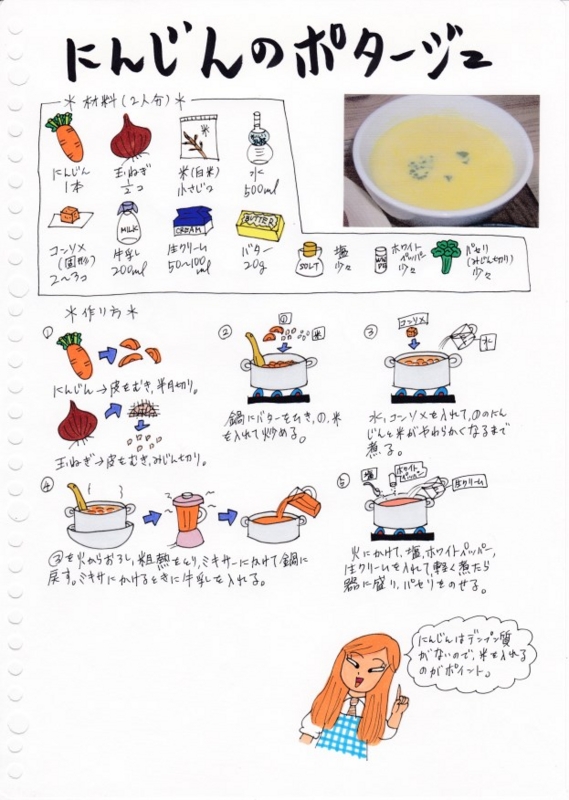 にんじんのポタージュ
＊材料(2人分)＊
にんじん
1本
玉ねぎ
1/2コ
米
米(白米)
小さじ2
水
500ml
コンソメ
(固形)
2〜3コ
MILK
牛乳
200ml
CREAM
生クリーム
50〜100ml
BUTTER
バター
20g
SOLT
塩
少々
ホワイト
ペッパー
少々
パセリ
(みじん切り)
少々
＊作り方＊
①
にんじん→皮をむき、半月切り。
玉ねぎ→皮をむき、みじん切り。
②
①
米
鍋にバターをひき、①、米
を入れて炒める。
③
コンソメ
水
水、コンソメを入れて、①のにん
じんと米がやわらかくなるまで
煮る。
④
③を火からおろし、粗熱をとり、ミキサーにかけて鍋に
戻す。ミキサにかけるときに牛乳を入れる。
⑤
塩
ホワイト
ペッパー
生クリーム
火にかけて、塩、ホワイトペッパー、
生クリームを入れて軽く煮たら
器に盛り、パセリをのせる。
にんじんはデンプン質
がないので、米を入れる
のがポイント。